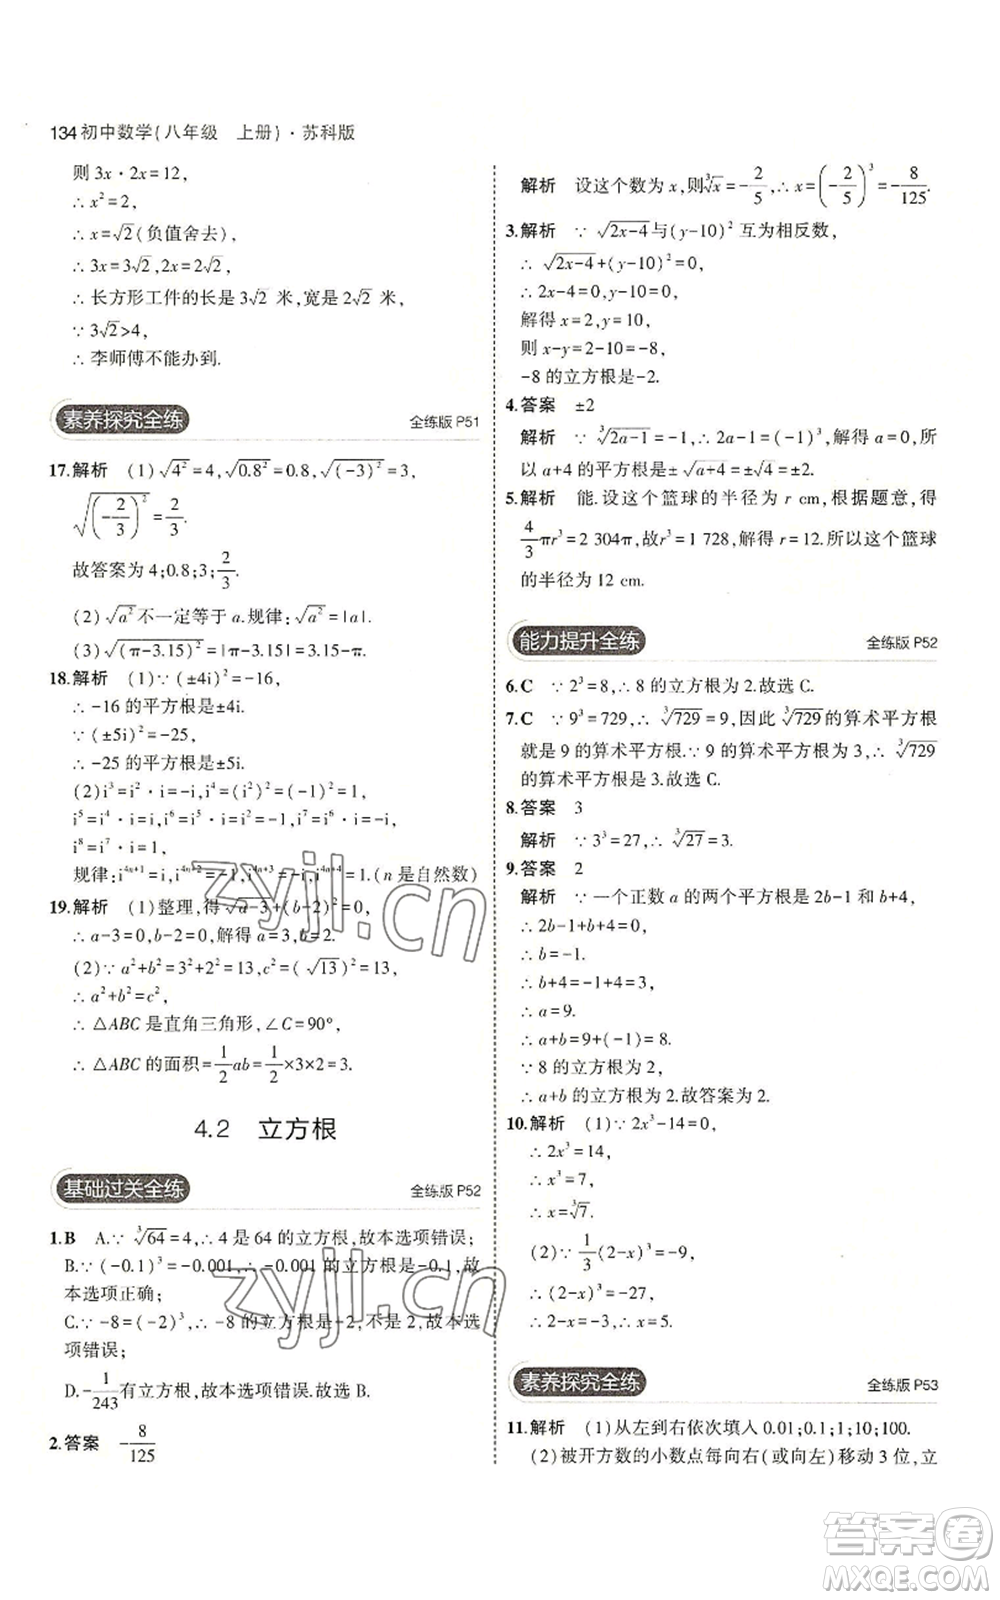 134初中数学(八年级 上册)·苏科版
则 3x·2x=12,
∴ x²=2,
∴ x=√2(负值舍去),
∴ 3x=3√2,2x=2√2,
∴ 长方形工件的长是 3√2 米,宽是 2√2 米,
∵ 3√2>4,
∴ 李师傅不能办到.
素养探究全练 全练版 P51
17.解析 (1)√(4²)=4,√(0.8²)=0.8,√((-3)²)=3,
√((-2/3)²)=2/3.
故答案为 4;0.8;3;2/3.
(2)√(a²)不一定等于 a.规律:√(a²)=|a|.
(3)√((π-3.15)²)=|π-3.15|=3.15-π.
18.解析 (1)∵ (±4i)²=-16,
∴ -16 的平方根是±4i.
∵ (±5i)²=-25,
∴ -25 的平方根是±5i.
(2)i³=i²·i=-i,i⁴=(i²)²=(-1)²=1,
i⁵=i⁴·i=i,i⁶=i⁵·i=-1,i⁷=i⁶·i=-i,
i⁸=i⁷·i=1.
规律:i⁴ⁿ⁺¹=i,i⁴ⁿ⁺²=-1,i⁴ⁿ⁺³=-i,i⁴ⁿ⁺⁴=1.(n 是自然数)
19.解析 (1)整理,得√(a-3)+(b-2)²=0,
∴ a-3=0,b-2=0,解得 a=3,b=2.
(2)∵ a²+b²=3²+2²=13,c²=(√13)²=13,
∴ a²+b²=c²,
∴ △ABC 是直角三角形,∠C=90°,
∴ △ABC 的面积=1/2ab=1/2×3×2=3.
4.2 立方根
基础过关全练 全练版 P52
1.B A.∵ ∛64=4,∴ 4 是 64 的立方根,故本选项错误;
B.∵ (-0.1)³=-0.001,∴ -0.001 的立方根是-0.1,故
本选项正确;
C.∵ -8=(-2)³,∴ -8 的立方根是-2,不是 2,故本选
项错误;
D.-1/243有立方根,故本选项错误.故选 B.
2.答案 -8/125
解析 设这个数为 x,则∛x=-2/5,∴ x=(-2/5)³=-8/125.
3.解析 ∵ √(2x-4)与(y-10)² 互为相反数,
∴ √(2x-4)+(y-10)²=0,
∴ 2x-4=0,y-10=0,
解得 x=2,y=10,
则 x-y=2-10=-8,
-8 的立方根是-2.
4.答案 ±2
解析 ∵ ∛(2a-1)=-1,∴ 2a-1=(-1)³,解得 a=0,所
以 a+4 的平方根是±√(a+4)=±√4=±2.
5.解析 能.设这个篮球的半径为 r cm,根据题意,得
4/3πr³=2 304π,故r³=1 728,解得 r=12.所以这个篮球
的半径为 12 cm.
能力提升全练 全练版 P52
6.C ∵ 2³=8,∴ 8 的立方根为 2.故选 C.
7.C ∵ 9³=729,∴ ∛729=9,因此 ∛729的算术平方根
就是 9 的算术平方根.∵ 9 的算术平方根为 3,∴ ∛729
的算术平方根是 3.故选 C.
8.答案 3
解析 ∵ 3³=27,∴ ∛27=3.
9.答案 2
解析 ∵ 一个正数 a 的两个平方根是 2b-1 和 b+4,
∴ 2b-1+b+4=0,
∴ b=-1.
∴ b+4=-1+4=3,
∴ a=9.
∴ a+b=9+(-1)=8.
∵ 8 的立方根为 2,
∴ a+b 的立方根为 2.故答案为 2.
10.解析 (1)∵ 2x³-14=0,
∴ 2x³=14,
∴ x³=7,
∴ x=∛7.
(2)∵ 1/3(2-x)³=-9,
∴ (2-x)³=-27,
∴ 2-x=-3,∴ x=5.
素养探究全练 全练版 P53
11.解析 (1)从左到右依次填入 0.01;0.1;1;10;100.
(2)被开方数的小数点每向右(或向左)移动 3 位,立
zyjl.cn
zyjl.cn
答案圈
MXQE.COM